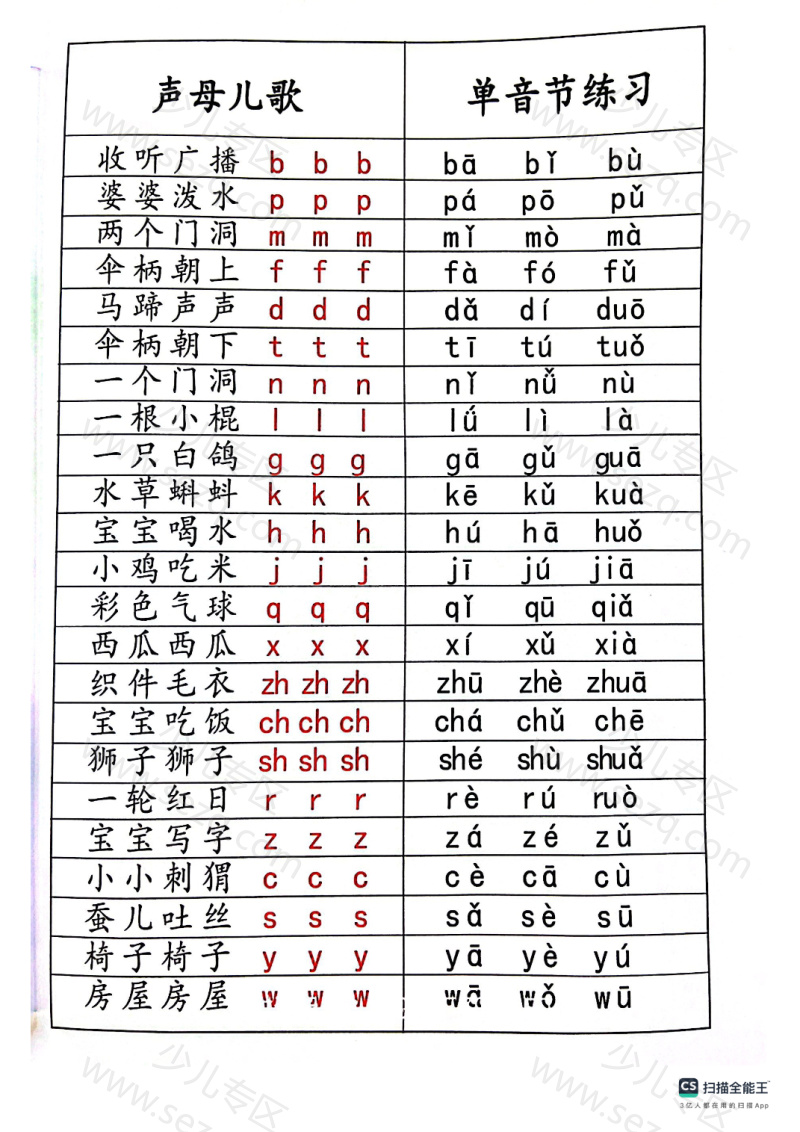 声母儿歌 单音节练习
收听广播 b b b bā bǐ bù
婆婆泼水 p p p pá pō pǔ
两个门洞 m m m mǐ mò mà
伞柄朝上 f f f fà fó fǔ
马蹄声声 d d d dǎ dí duō
伞柄朝下 t t t tī tú tuǒ
一个门洞 n n n nǐ nǚ nù
一根小棍 l l l lǘ lì là
一只白鸽 g g g gā gǔ guā
水草蝌蚪 k k k kē kǔ kuà
宝宝喝水 h h h hú hā huǒ
小鸡吃米 j j j jī jú jiā
彩色气球 q q q qǐ qū qiǎ
西瓜西瓜 x x x xí xǔ xià
织件毛衣 zh zh zh zhū zhè zhuā
宝宝吃饭 ch ch ch chá chǔ chē
狮子狮子 sh sh sh shé shù shuǎ
一轮红日 r r r rè rú ruò
宝宝写字 z z z zá zé zǔ
小小刺猬 c c c cè cā cù
蚕儿吐丝 s s s sǎ sè sū
椅子椅子 y y y yā yè yú
房屋房屋 w w w wā wǒ wū
少儿专区
www.sezq.com
CS 扫描全能王
3亿人都在用的扫描App